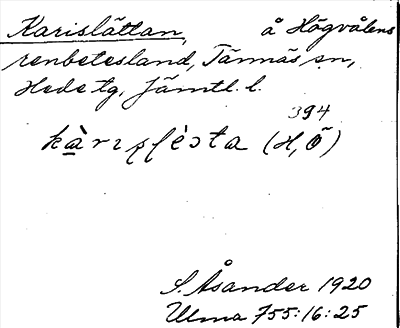 Karislättan, å Högvålens
renbetesland, Tännäs sn,
Hede tg, Jämtl. l.
394
(H, Ö)
S. Åsander 1920
Ulma 755:16:25